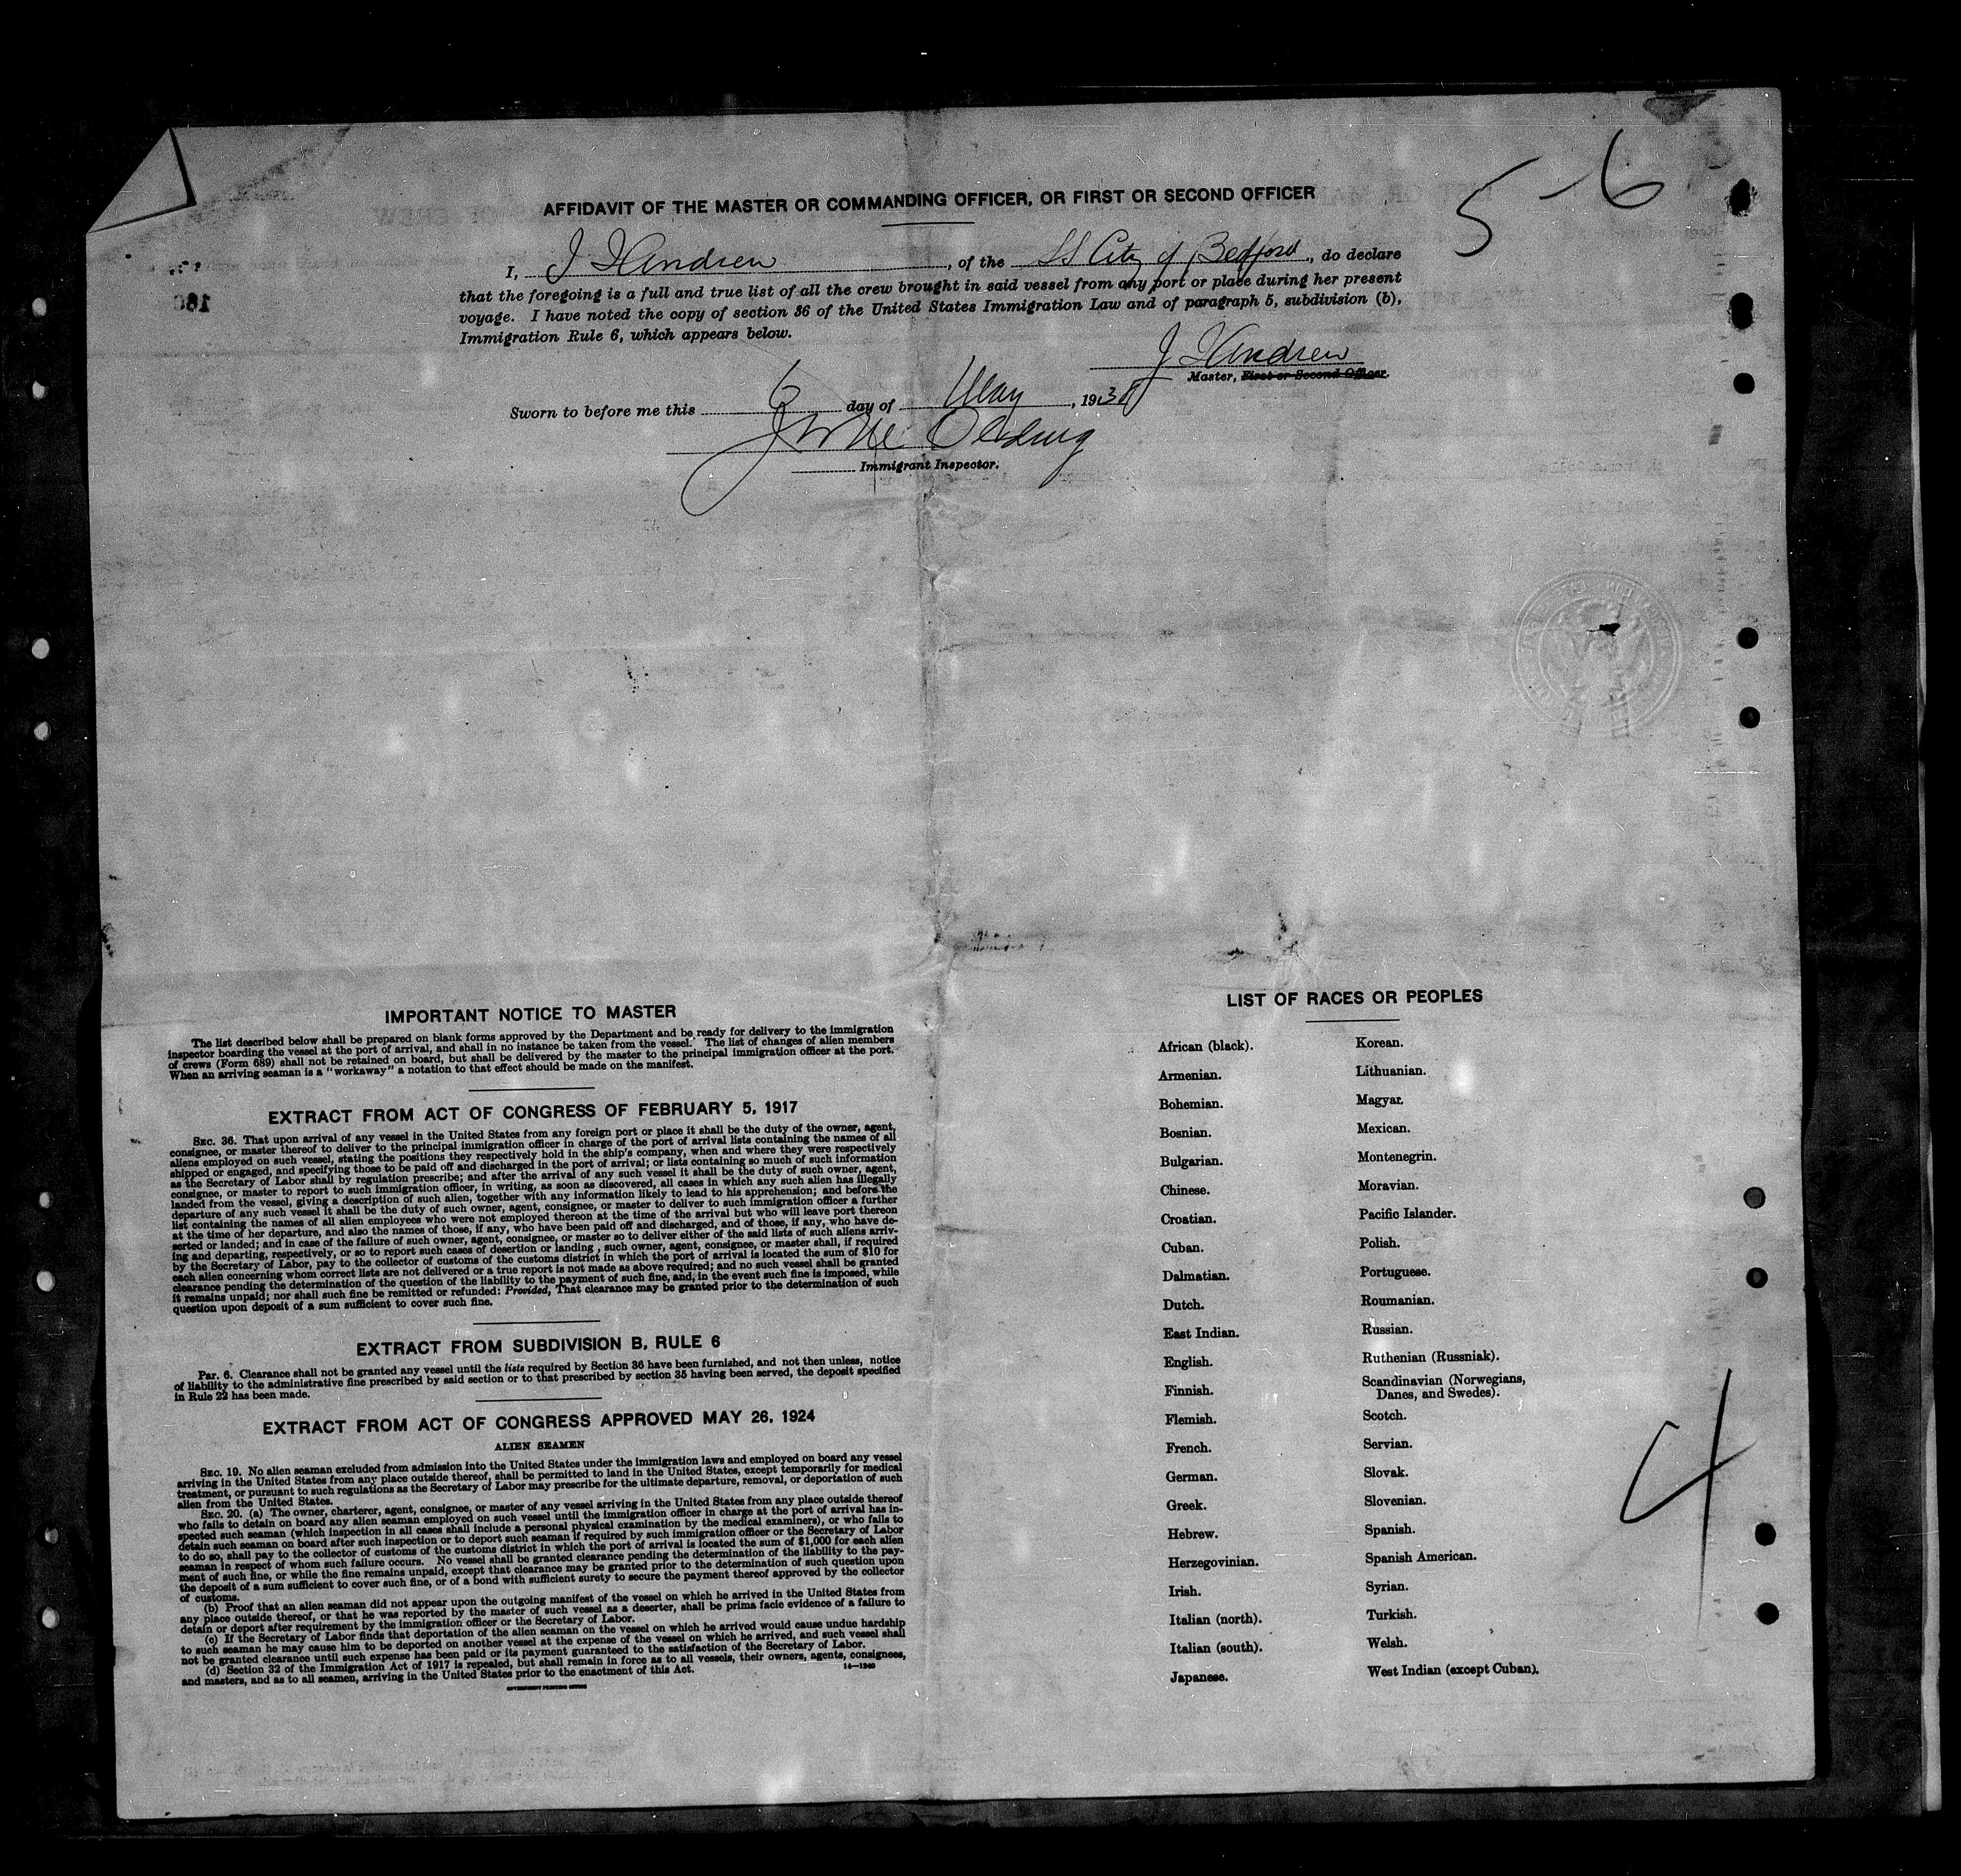 5-6
AFFIDAVIT OF THE MASTER OR COMMANDING OFFICER, OR FIRST OR SECOND OFFICER
I, J Hendrew, of the SS City of Bedford, do declare
that the foregoing is a full and true list of all the crew brought in said vessel from any port or place during her present
voyage. I have noted the copy of section 36 of the United States Immigration Law and of paragraph 5, subdivision (b),
Immigration Rule 6, which appears below.
J Hendrew
Master, First or Second Officer.
Sworn to before me this 6 day of May, 193
Immigrant Inspector.
IMPORTANT NOTICE TO MASTER
The list described below shall be prepared on blank forms approved by the Department and be ready for delivery to the immigration
inspector boarding the vessel at the port of arrival, and shall in no instance be taken from the vessel. The list of changes of alien members
of crews (Form 689) shall not be retained on board, but shall be delivered by the master to the principal immigration officer at the port.
When an arriving seaman is a "workaway" a notation to that effect should be made on the manifest.
EXTRACT FROM ACT OF CONGRESS OF FEBRUARY 5, 1917
SEC. 36. That upon arrival of any vessel in the United States from any foreign port or place it shall be the duty of the owner, agent,
consignee, or master thereof to deliver to the principal immigration officer in charge of the port of arrival lists containing the names of all
aliens employed on such vessel, stating the positions they respectively hold in the ship's company, when and where they were respectively
shipped or engaged, and specifying those to be paid off and discharged in the port of arrival; or lists containing so much of such information
as the Secretary of Labor shall by regulation prescribe; and after the arrival of any such vessel it shall be the duty of such owner, agent,
consignee, or master to report to such immigration officer, in writing, as soon as discovered, all cases in which any such alien has illegally
landed from the vessel, giving a description of such alien, together with any information likely to lead to his apprehension; and before the
departure of any such vessel it shall be the duty of such owner, agent, consignee, or master to deliver to such immigration officer a further
list containing the names of all alien employees who were not employed thereon at the time of the arrival but who will leave port thereon
at the time of her departure, and also the names of those, if any, who have been paid off and discharged, and of those, if any, who have de-
serted or landed; and in case of the failure of such owner, agent, consignee, or master so to deliver either of the said lists of such aliens arriv-
ing and departing, respectively, or so to report such cases of desertion or landing, such owner, agent, consignee, or master shall, if required
by the Secretary of Labor, pay to the collector of customs of the customs district in which the port of arrival is located the sum of $10 for
each alien concerning whom correct lists are not delivered or a true report is not made as above required; and no such vessel shall be granted
clearance pending the determination of the question of the liability to the payment of such fine, and, in the event such fine is imposed, while
it remains unpaid; nor shall such fine be remitted or refunded: Provided, That clearance may be granted prior to the determination of such
question upon deposit of a sum sufficient to cover such fine.
EXTRACT FROM SUBDIVISION B, RULE 6
Par. 6. Clearance shall not be granted any vessel until the lists required by Section 36 have been furnished, and not then unless, notice
of liability to the administrative fine prescribed by said section or to that prescribed by section 35 having been served, the deposit specified
in Rule 22 has been made.
EXTRACT FROM ACT OF CONGRESS APPROVED MAY 26, 1924
ALIEN SEAMEN
SEC. 19. No alien seaman excluded from admission into the United States under the immigration laws and employed on board any vessel
arriving in the United States from any place outside thereof, shall be permitted to land in the United States, except temporarily for medical
treatment, or pursuant to such regulations as the Secretary of Labor may prescribe for the ultimate departure, removal, or deportation of such
alien from the United States.
SEC. 20. (a) The owner, charterer, agent, consignee, or master of any vessel arriving in the United States from any place outside thereof
who fails to detain on board any alien seaman employed on such vessel until the immigration officer in charge at the port of arrival has in-
spected such seaman (which inspection in all cases shall include a personal physical examination by the medical examiners), or who fails to
detain such seaman on board after such inspection or to deport such seaman if required by such immigration officer or the Secretary of Labor
to do so, shall pay to the collector of customs of the customs district in which the port of arrival is located the sum of $1,000 for each alien
seaman in respect of whom such failure occurs. No vessel shall be granted clearance pending the determination of the liability to the pay-
ment of such fine, or while the fine remains unpaid, except that clearance may be granted prior to the determination of such question upon
the deposit of a sum sufficient to cover such fine, or of a bond with sufficient surety to secure the payment thereof approved by the collector
of customs.
(b) Proof that an alien seaman did not appear upon the outgoing manifest of the vessel on which he arrived in the United States from
any place outside thereof, or that he was reported by the master of such vessel as a deserter, shall be prima facie evidence of a failure to
detain or deport after requirement by the immigration officer or the Secretary of Labor.
(c) If the Secretary of Labor finds that deportation of the alien seaman on the vessel on which he arrived would cause undue hardship
to such seaman he may cause him to be deported on another vessel at the expense of the vessel on which he arrived, and such vessel shall
not be granted clearance until such expense has been paid or its payment guaranteed to the satisfaction of the Secretary of Labor.
(d) Section 32 of the Immigration Act of 1917 is repealed, but shall remain in force as to all vessels, their owners, agents, consignees,
and masters, and as to all seamen, arriving in the United States prior to the enactment of this Act.
14—1240
GOVERNMENT PRINTING OFFICE
LIST OF RACES OR PEOPLES
African (black).
Armenian.
Bohemian.
Bosnian.
Bulgarian.
Chinese.
Croatian.
Cuban.
Dalmatian.
Dutch.
East Indian.
English.
Finnish.
Flemish.
French.
German.
Greek.
Hebrew.
Herzegovinian.
Irish.
Italian (north).
Italian (south).
Japanese.
Korean.
Lithuanian.
Magyar.
Mexican.
Montenegrin.
Moravian.
Pacific Islander.
Polish.
Portuguese.
Roumanian.
Russian.
Ruthenian (Russniak).
Scandinavian (Norwegians,
Danes, and Swedes).
Scotch.
Servian.
Slovak.
Slovenian.
Spanish.
Spanish American.
Syrian.
Turkish.
Welsh.
West Indian (except Cuban).
4